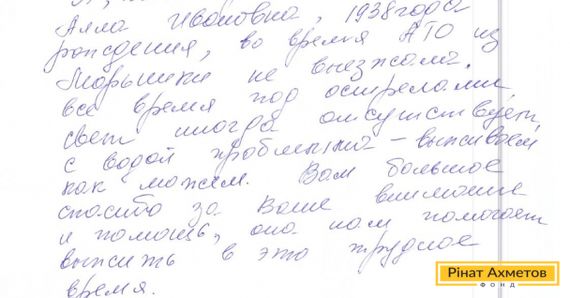 Алла Ивановна, 1938 года
рождения, во время АТО из
Марьинки не выезжали,
все время под острелами,
свет иногда отсутствует,
с водой проблемы - выживаем
как можем. Вам большое
спасибо за Ваше внимание
и помощь, она нам помогает
выжить в это трудное
время.
Рінат Ахметов
ФОНД